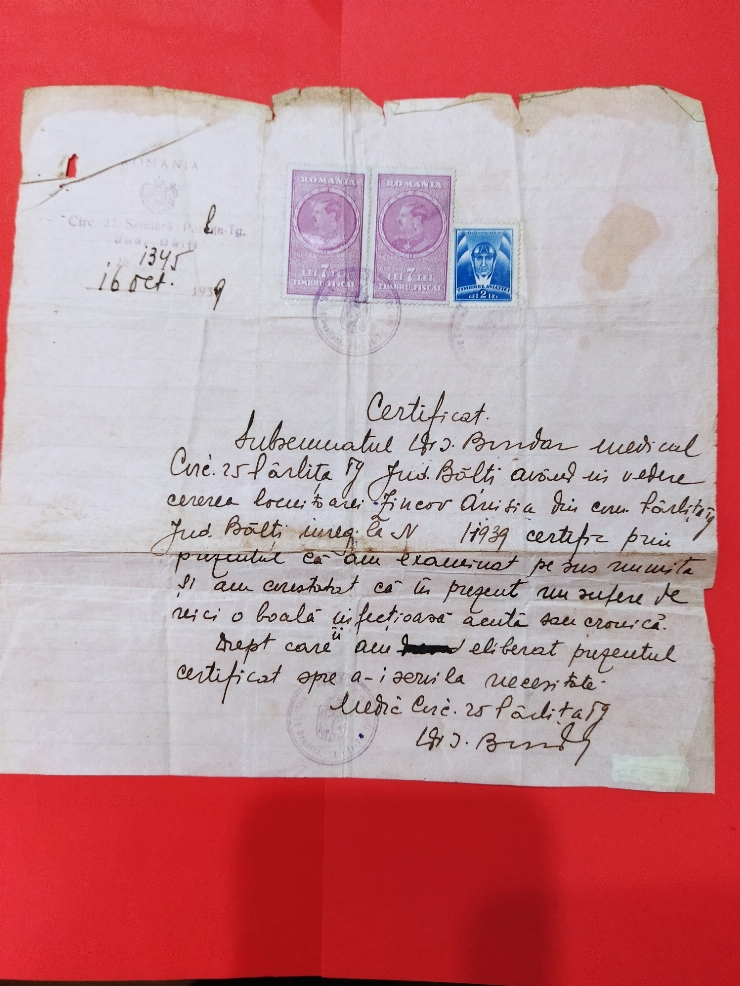 ROMANIA
Circ. 25 Sanitară Pârlița-Tg.
Jud. Bălți
1345
16 Oct. 1939
ROMANIA
LEI 7 LEI
TIMBRU FISCAL
ROMANIA
LEI 7 LEI
TIMBRU FISCAL
TIMBRUL AVIAȚIEI
LEI 2 LEI
Certificat.
Subsemnatul Dr. I. medicul
Circ. 25 Pârlița Tg Jud. Bălți având în vedere
cererea locuitoarei Jincov Anisia din com. Pârlița Tg
Jud. Bălți înreg. la N 1939 certific prin
prezentul că am examinat pe sus numita
și am constatat că în prezent nu sufere de
nici o boală infecțioasă acută sau cronică.
Drept care îi am eliberat prezentul
certificat spre a-i servi la necesitate.
Medic Circ. 25 Pârlița Tg
Dr. I.